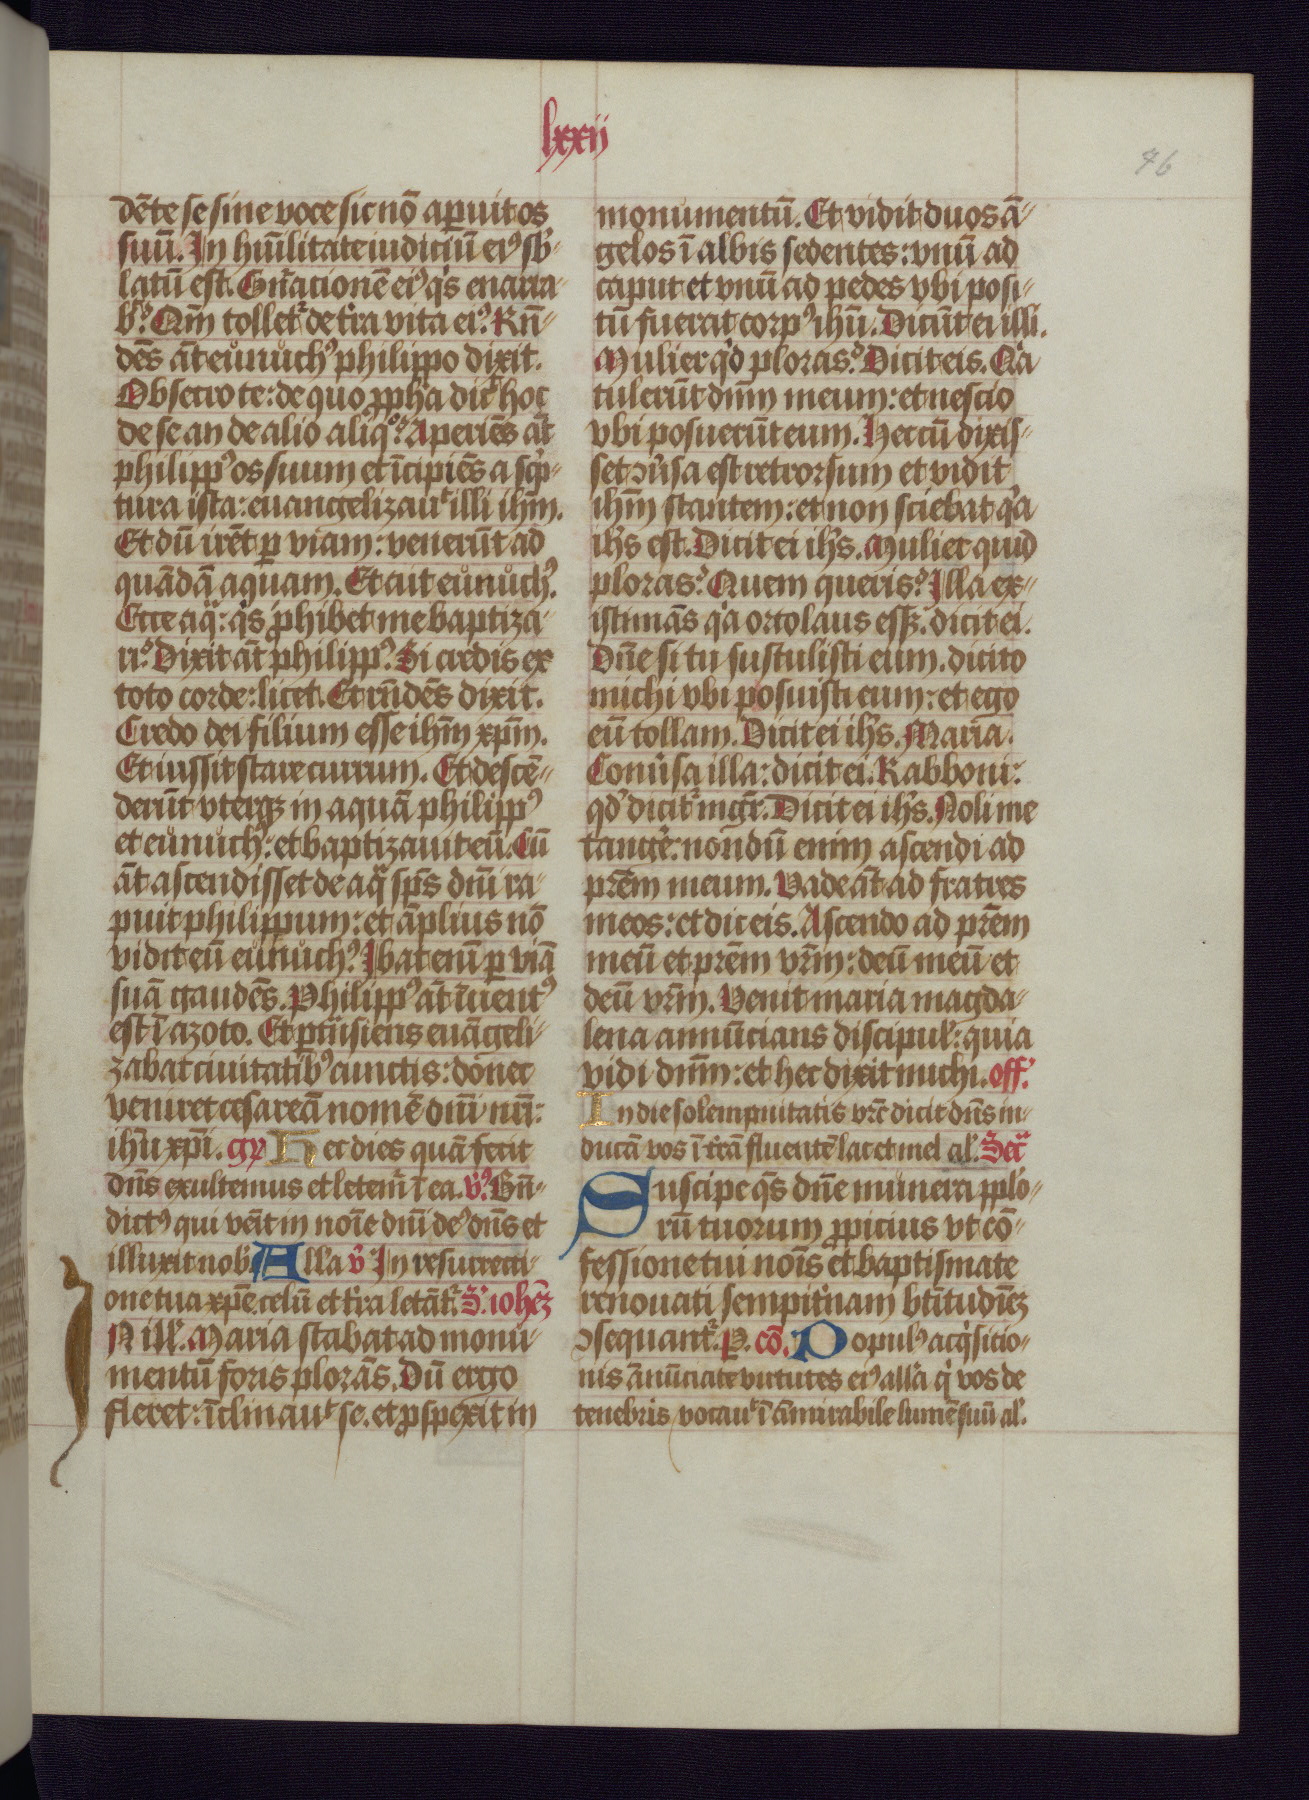 lxxii
76
dēte se sine voce sic nō aperuit os
suū. In hūilitate iudiciū eiꝰ sb̄-
latū est. Gn̄acionē eiꝰ qͥs enarra-
bͭ? Qm̄ tolletᷣ de t̄ra vita eiꝰ. Rn̄-
dēs āt eůnůchꝰ philippo dixit.
Obsecro te: de quo ꝓpha dicͭ hoc
de se an de alio aliqͦ? Aperiēs āt
philippꝰ os suum et īcipiēs a scͥp-
tura ista: euangelizauͭ illi ihm̄.
Et dū irēt ꝑ viam: venerūt ad
quādā aquam. Et ait eůnůchꝰ.
Ecce aqͣ: qͥs ꝓhibet me baptiza-
ri? Dixit āt philippꝰ. Si credis ex
toto corde: licet. Et rn̄dēs dixit.
Credo dei filium esse ihm̄ xp̄m.
Et iussit stare currum. Et descē-
derūt vterqꝫ in aquā philippꝰ
et eůnůchꝰ: et baptizauit eū. Cū
āt ascendisset de aqͣ sp̄s dn̄i ra-
puit philippum: et āplius nō
vidit eū eůnůchꝰ. Ibat enī ꝑ viā
suā gaudēs. Philippꝰ āt īuentꝰ
est ī azoto. Et ꝑtn̄siens euāgeli-
zabat ciuitatibꝰ cunctis: donec
veniret cesareā nomē dn̄i nr̄i:
ihū xp̄i. gr̄ Hec dies quā fecit
dn̄s exultemus et letemͬ ī ea. v̄ꝰ. Bn̄-
dictꝰ qui vēit in noīe dn̄i deꝰ dn̄s et
illuxit nobᷤ. Alla v̄ In resurrecti-
one tua xp̄e celū et t̄ra letātᷣ. S. iohēꝫ
N illᷤ. Maria stabat ad monu-
mentū foris plorās. Dū ergo
fleret: īclinauͭ se. et ꝓspexit in
monumentū. Et vidit duos ā-
gelos ī albis sedentes: vnū ad
caput et vnū ad pedes vbi posi-
tū fuerat corpꝰ ihū. Dicūt ei illi.
Mulier qͥd ploras? Dicit eis. Qͥa
tulerūt dn̄m meum: et nescio
vbi posuerūt eum. Hec cū dixis-
set ꝯu̓sa est retrorsum et vidit
ihm̄ stantem: et non sciebat qͥa
ih̄s est. Dicit ei ih̄s. Mulier quid
ploras? Quem queris? Illa ex-
istimās qͥa ortolaus eſſꝫ. dicit ei.
Dn̄e si tu sustulisti eum. dicito
michi vbi posuisti eum: et ego
eū tollam. Dicit ei ih̄s. Maria.
Conu̓sa illa: dicit ei. Rabboni:
qd̓ dicitᷣ mgr̄. Dicit ei ih̄s. Noli me
tange̓: nondū enim ascendi ad
pr̄em meum. Vade āt ad fratres
meos: et dic eis. Ascendo ad pr̄em
meū et pr̄em vr̄m: deū meū et
deū vr̄m. Venit maria magda-
lena annūcians discipulᷤ: quia
vidi dn̄m: et hec dixit michi. off̄.
In die solempnitatis vr̄e dicit dn̄s in-
ducā vos ī t̄rā fluentē lac et mel al̓. Secͣ
Suscipe qͥs dn̄e munera pplo-
rū tuorum ꝓpicius vt cō-
fessione tui noīs et baptismate
renouati sempit̓nam btītudīeꝫ
ꝯsequantᷣ. P. cō. Populꝰ acqͥsitio-
nis ānūciate virtutes eiꝰ alla qͥ vos de
tenebris vocauͭ ī āmirabile lumē suū al̓.